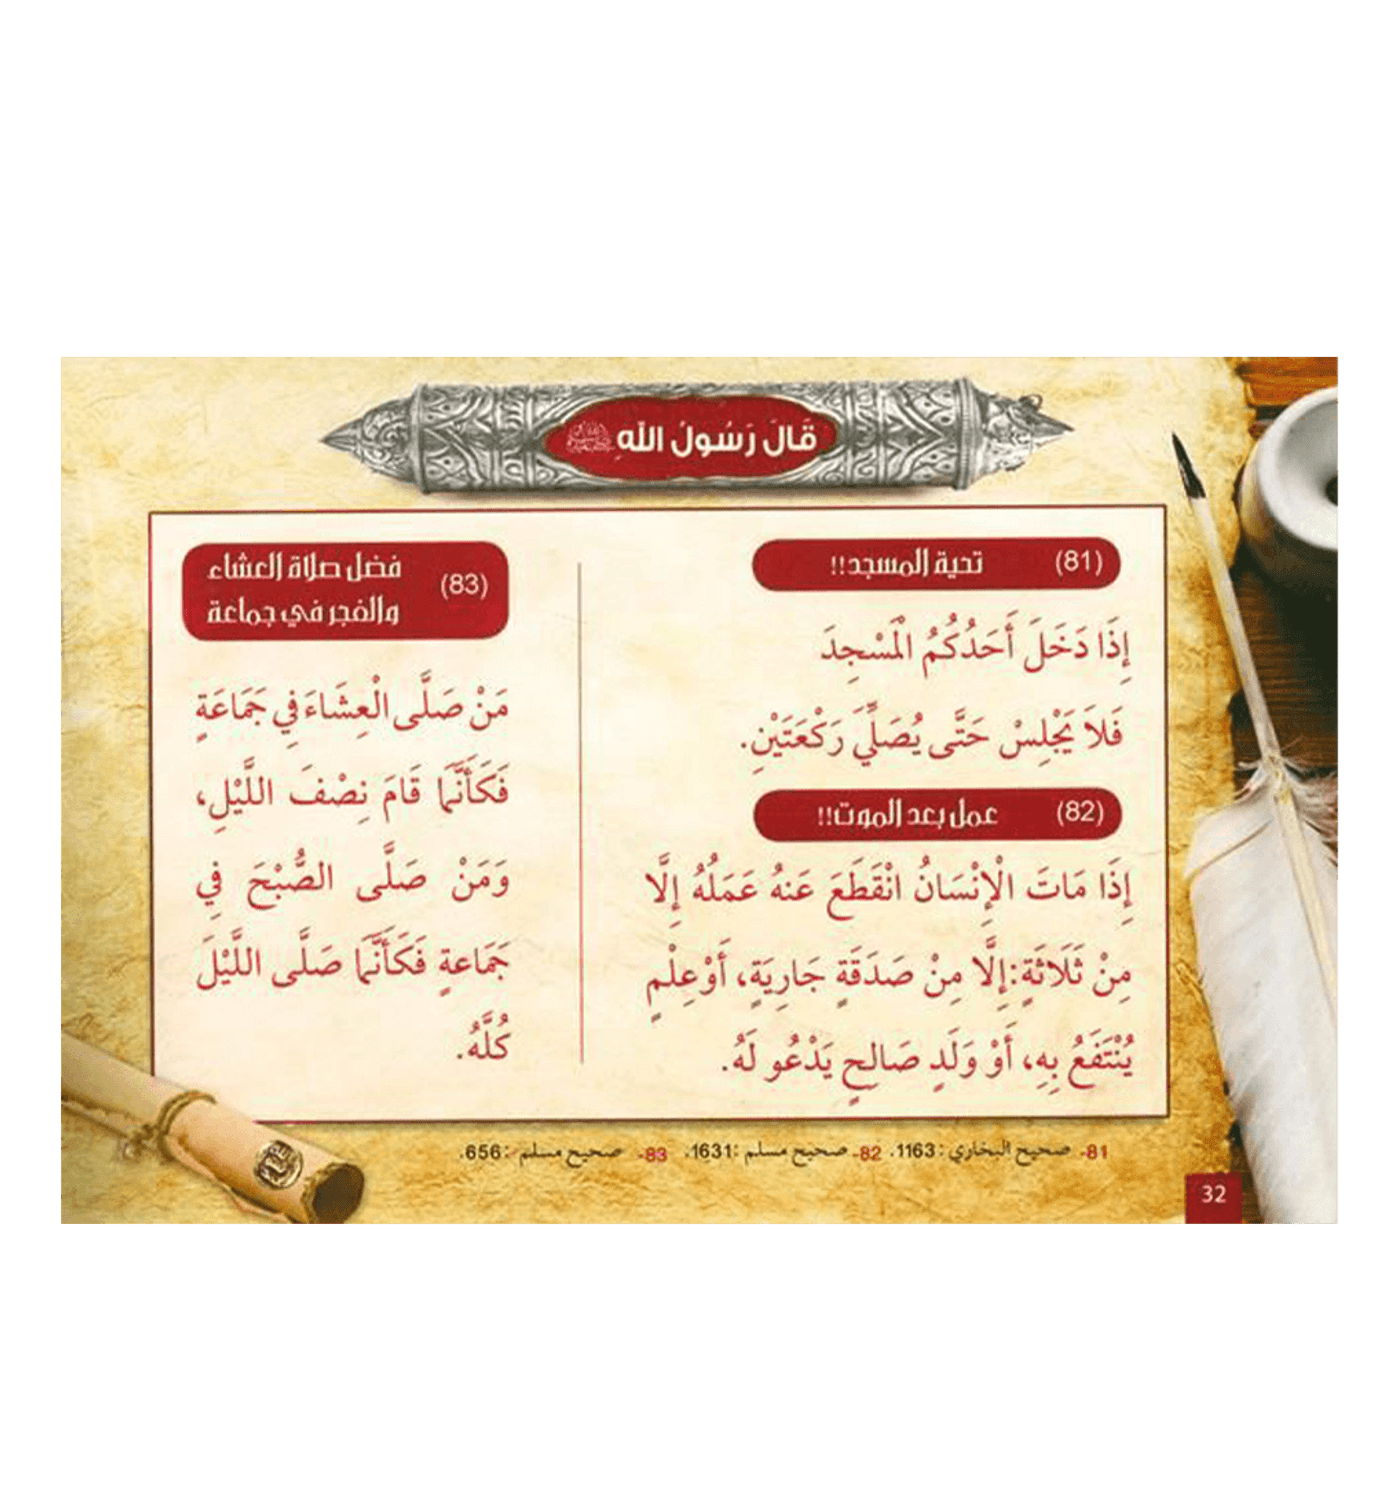 قَالَ رَسُولُ اللَّهِ ﷺ
(81) تحية المسجد!!
إِذَا دَخَلَ أَحَدُكُمُ الْمَسْجِدَ
فَلاَ يَجْلِسْ حَتَّى يُصَلِّيَ رَكْعَتَيْنِ.
(82) عمل بعد الموت!!
إِذَا مَاتَ الْإِنْسَانُ انْقَطَعَ عَنهُ عَمَلُهُ إِلَّا
مِنْ ثَلَاثَةٍ:إِلَّا مِنْ صَدَقَةٍ جَارِيَةٍ، أَوْ عِلْمٍ
يُنْتَفَعُ بِهِ، أَوْ وَلَدٍ صَالِحٍ يَدْعُو لَهُ.
(83) فضل صلاة العشاء
والفجر في جماعة
مَنْ صَلَّى الْعِشَاءَ فِي جَمَاعَةٍ
فَكَأَنَّمَا قَامَ نِصْفَ اللَّيْلِ،
وَمَنْ صَلَّى الصُّبْحَ فِي
جَمَاعةٍ فَكَأَنَّمَا صَلَّى اللَّيْلَ
كُلَّهُ.
81- صحيح البخاري :1163. 82- صحيح مسلم :1631. 83- صحيح مسلم :656.
32